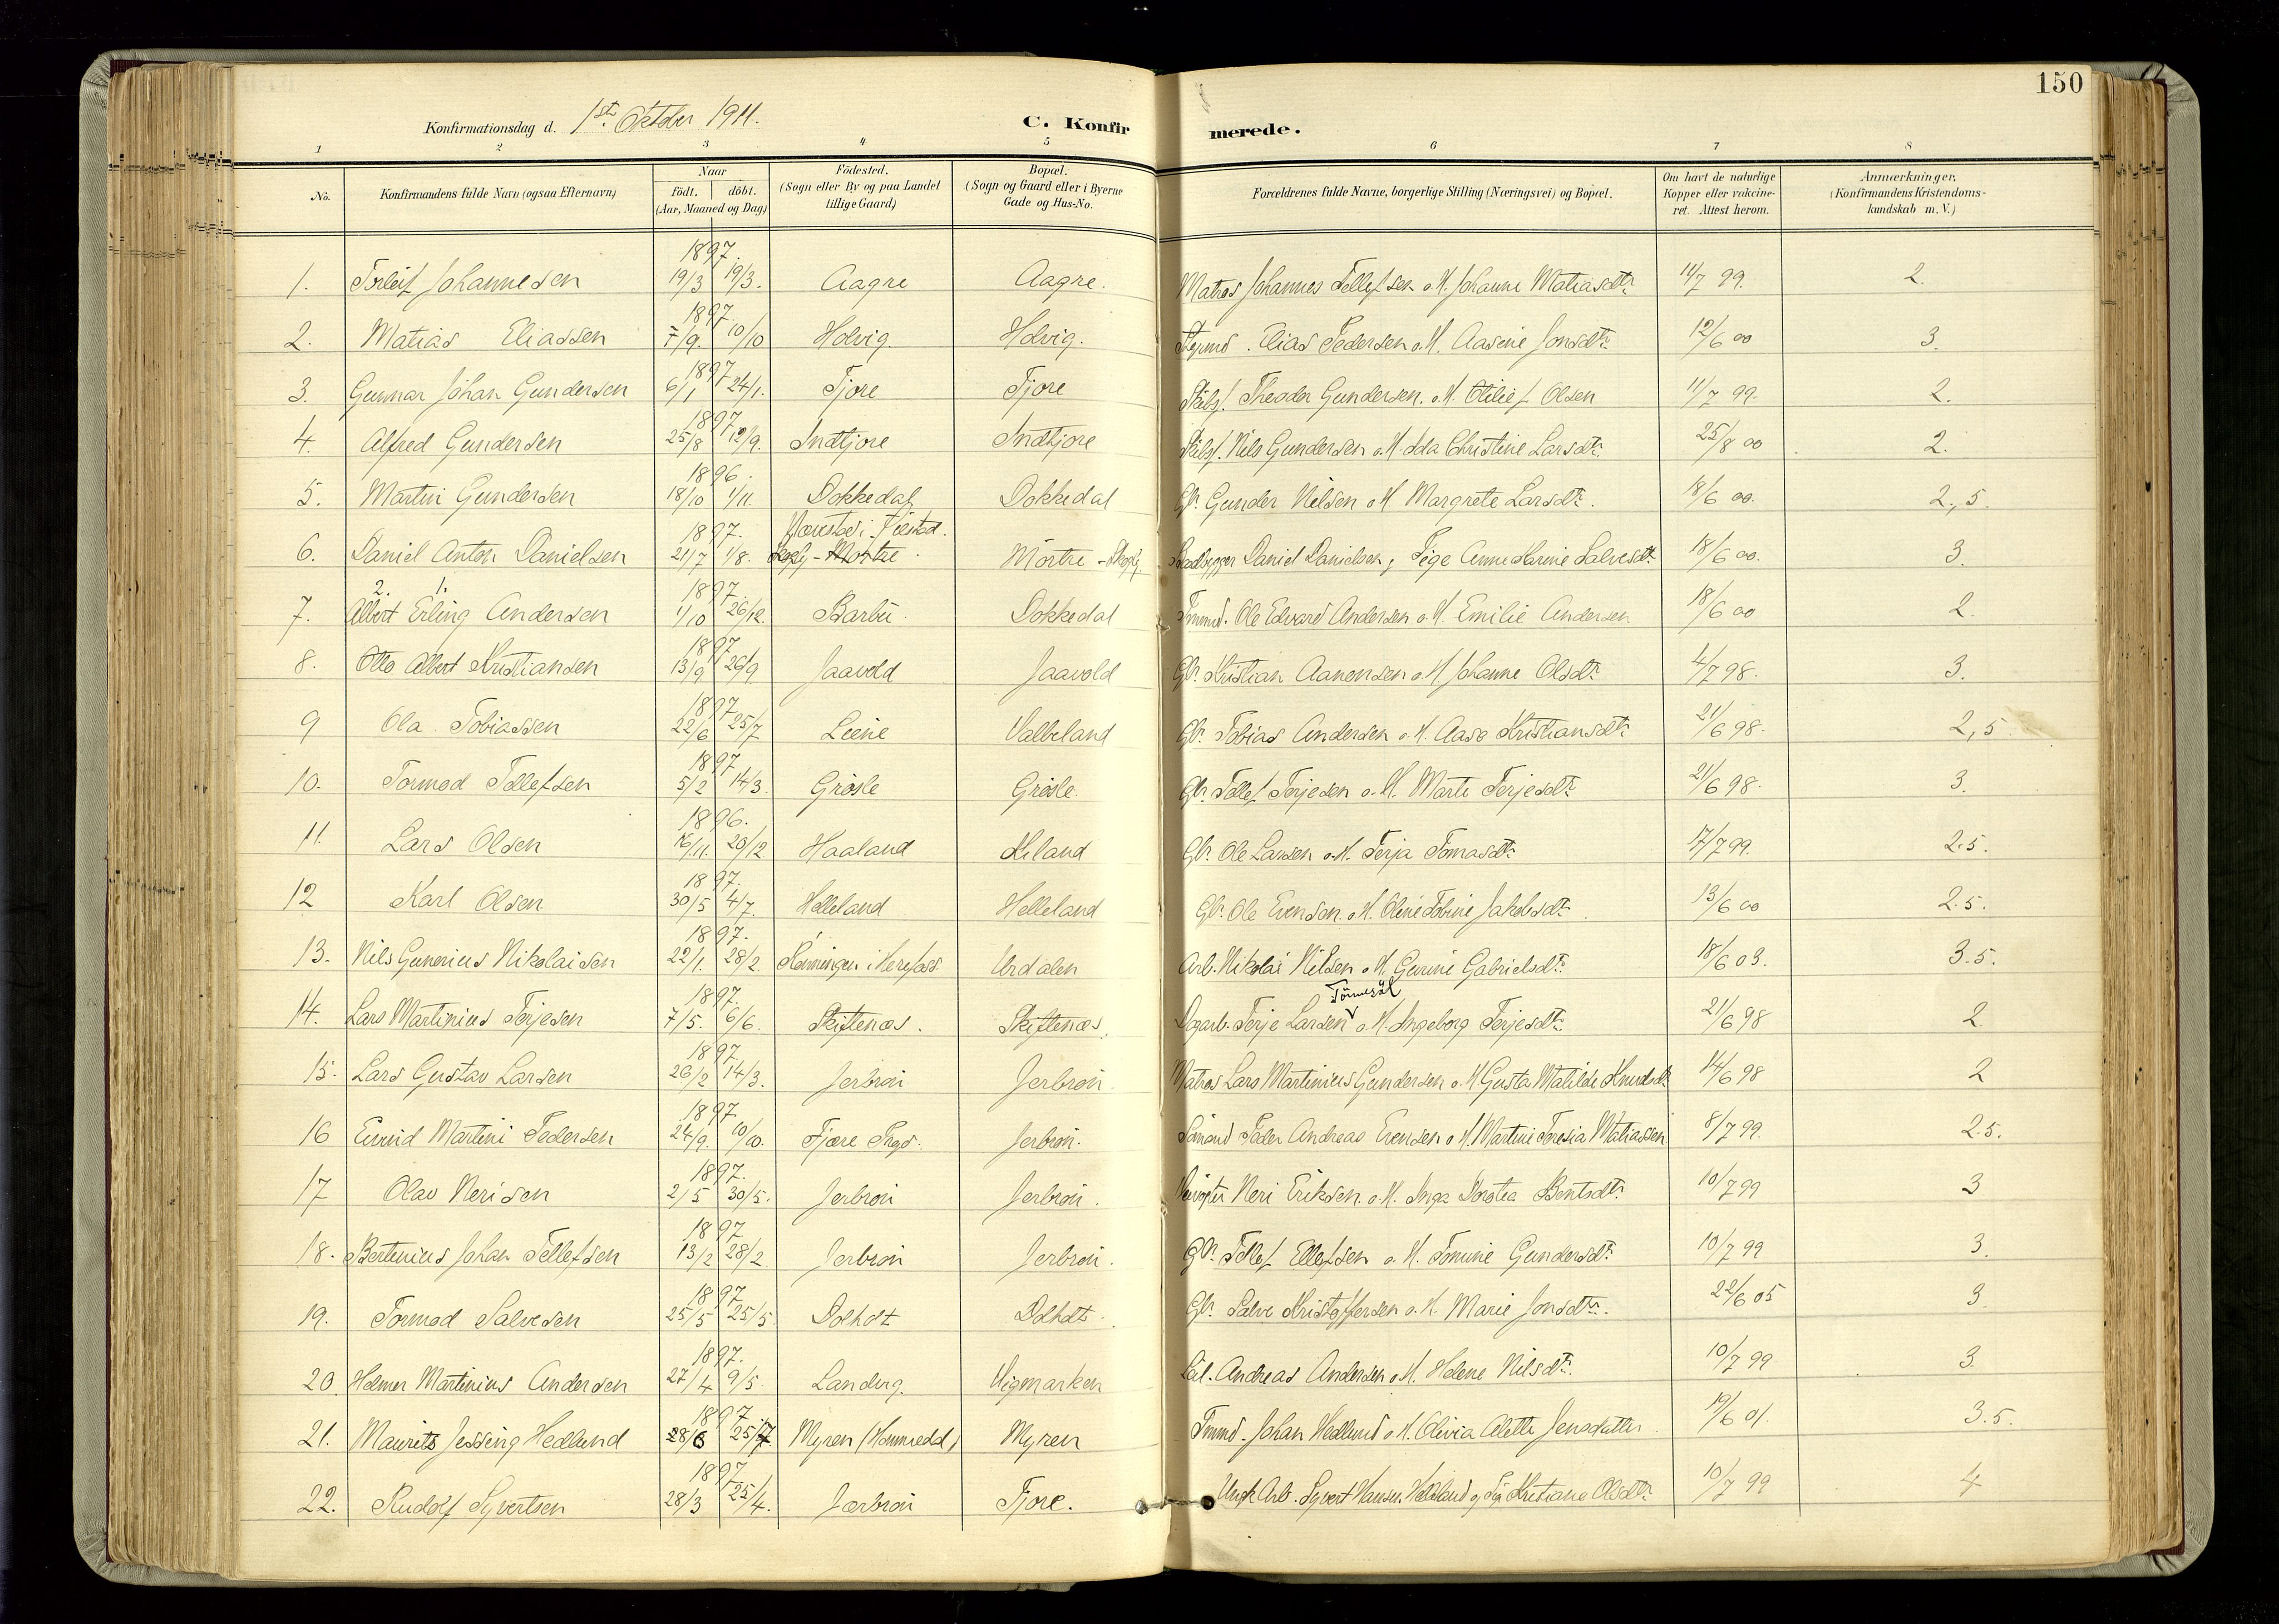 150
Konfirmationsdag d. 1ste Oktober 1911. C. Konfirmerede.
1 2 3 4 5 6 7 8
No. Konfirmandens fulde Navn (ogsaa Efternavn) Naar født. døbt. (Aar, Maaned og Dag) Födested. (Sogn eller By og paa Landet tillige Gaard) Bopæl. (Sogn og Gaard eller i Byerne Gade og Hus-No. Forældrenes fulde Navne, borgerlige Stilling (Næringsvei) og Bopæl. Om havt de naturlige Kopper eller vakcineret. Attest herom. Anmærkninger, (Konfirmandens Kristendomskundskab m. V.)
1897.
1. Torleif Johannesen 19/3 19/3. Aagre Aagre. Matros Johannes Tellefsen o. H. Johanne Matiasdtr 11/7 99. 2.
1897.
2. Matias Eliassen 7/9. 10/10 Holvig. Holvig. Elias Pedersen o. H. Aasine Jonsdtr. 12/6 00 3.
1897
3. Gunnar Johan Gundersen 6/1 24/1. Fjøre Fjøre Skibsf. Theodor Gundersen. o. H. Otilie f. Olsen 11/7 99. 2.
1897
4. Alfred Gundersen 25/8 12/9. Indfjøre Indfjøre Skibsf. Nils Gundersen o. H. Ida Christine Larsdtr. 25/8 00 2.
1896.
5. Martin Gundersen 18/10 1/11. Dokkedal Dokkedal Gbr. Gunder Nilsen o. H. Margrete Larsdtr. 18/6 00. 2,5
1897.
6. Daniel Anton Danielsen 21/7 1/8. Mørtre Mørtre - Daniel Danielsen, Pige Anne Karine Salvesdtr. 18/6 00. 3.
2. 1. 1897.
7. Albert Erling Andersen 1/10 26/12. Barbu. Dokkedal Tmmd. Ole Edvard Andersen o. H. Emilie Andersen 18/6 00 2.
1897
8. Otto Albert Kristiansen 13/9 26/9 Jaavold Jaavold Gbr. Kristian Aanensen o. H. Johanne Olsdtr. 4/7 98. 3.
1897
9 Ola Tobiassen 22/6 25/7 Leene Valbeland Gbr. Tobias Andersen o. H. Aase Kristiansdtr. 21/6 98. 2,5
1897
10. Tormod Tellefsen 5/2 14/3. Grøsle Grøsle. Gbr. Tellef Terjesen o. H. Marte Terjesdtr. 21/6 98. 3.
1896.
11. Lars Olsen 16/11. 20/12 Haaland Kiland Gbr. Ole Larsen o. H. Terja Tomasdtr. 17/7 99. 2.5.
1897.
12 Karl Olsen 30/5 4/7. Helleland Helleland Gbr. Ole Evensen o. H. Oline Tobine Jakobsdtr. 13/6 00 2.5.
1897.
13. Nils Gunerius Nikolaisen 22/1. 28/2. Rønningen i Herefoss Urdalen Arb. Nikolai Nilsen o. H. Gurine Gabrielsdtr. 18/6 03. 3.5.
1897.
14. Lars Martinius Terjesen 7/5. 6/6. Skiftenæs. Skiftenæs. Dagarb. Terje Larsen o. H. Ingeborg Terjesdtr. 21/6 98 2
1897.
15. Lars Gustav Larsen 26/2 14/3. Jerbron Jerbron. Matros Lars Martinius Gundersen o. H. Gusta Matilde Knudsdtr. 14/6 98 2
1897.
16 Eivind Martin Pedersen 24/9. 10/10. Fjære Jerbron. Sømand Peder Andreas Evensen o. H. Martine Teresia Matiassen 8/7 99. 2.5.
1897.
17 Olav Nerisen 2/5 30/5. Jerbron Jerbron. Neri Eriksen. o. H. Inga Dorotea Bentsdtr. 10/7 99 3
1897
18. Bertinius Johan Tellefsen 13/2 28/2. Jerbron Jerbron. Gbr. Tellef Ellefsen o. H. Tomine Gundersdtr. 10/7 99 3.
1897.
19. Tormod Salvesen 25/5 25/5. Dolholt Dolholt. Gbr. Salve Kristoffersen o. H. Marie Jonsdtr. 22/6 05 3
1897.
20. Helmer Martinius Andersen 27/4 9/5. Landvig. Vigmarken Andreas Andersen o. H. Helene Nilsdtr. 10/7 99 3.
1897
21. Maurits Jessing Hedlund 28/6 25/7 Myren (Hommedal) Myren Tmmd. Johan Hedlund o. H. Olivia Alette Jensdatter 19/6 01. 3.5.
1897.
22. Rudolf Syvertsen 28/3 25/4. Jærbron Fjøre. Ungk. Arb. Syvert Hansen Helleland og Pige Kristiane Olsdtr. 10/7 99 4